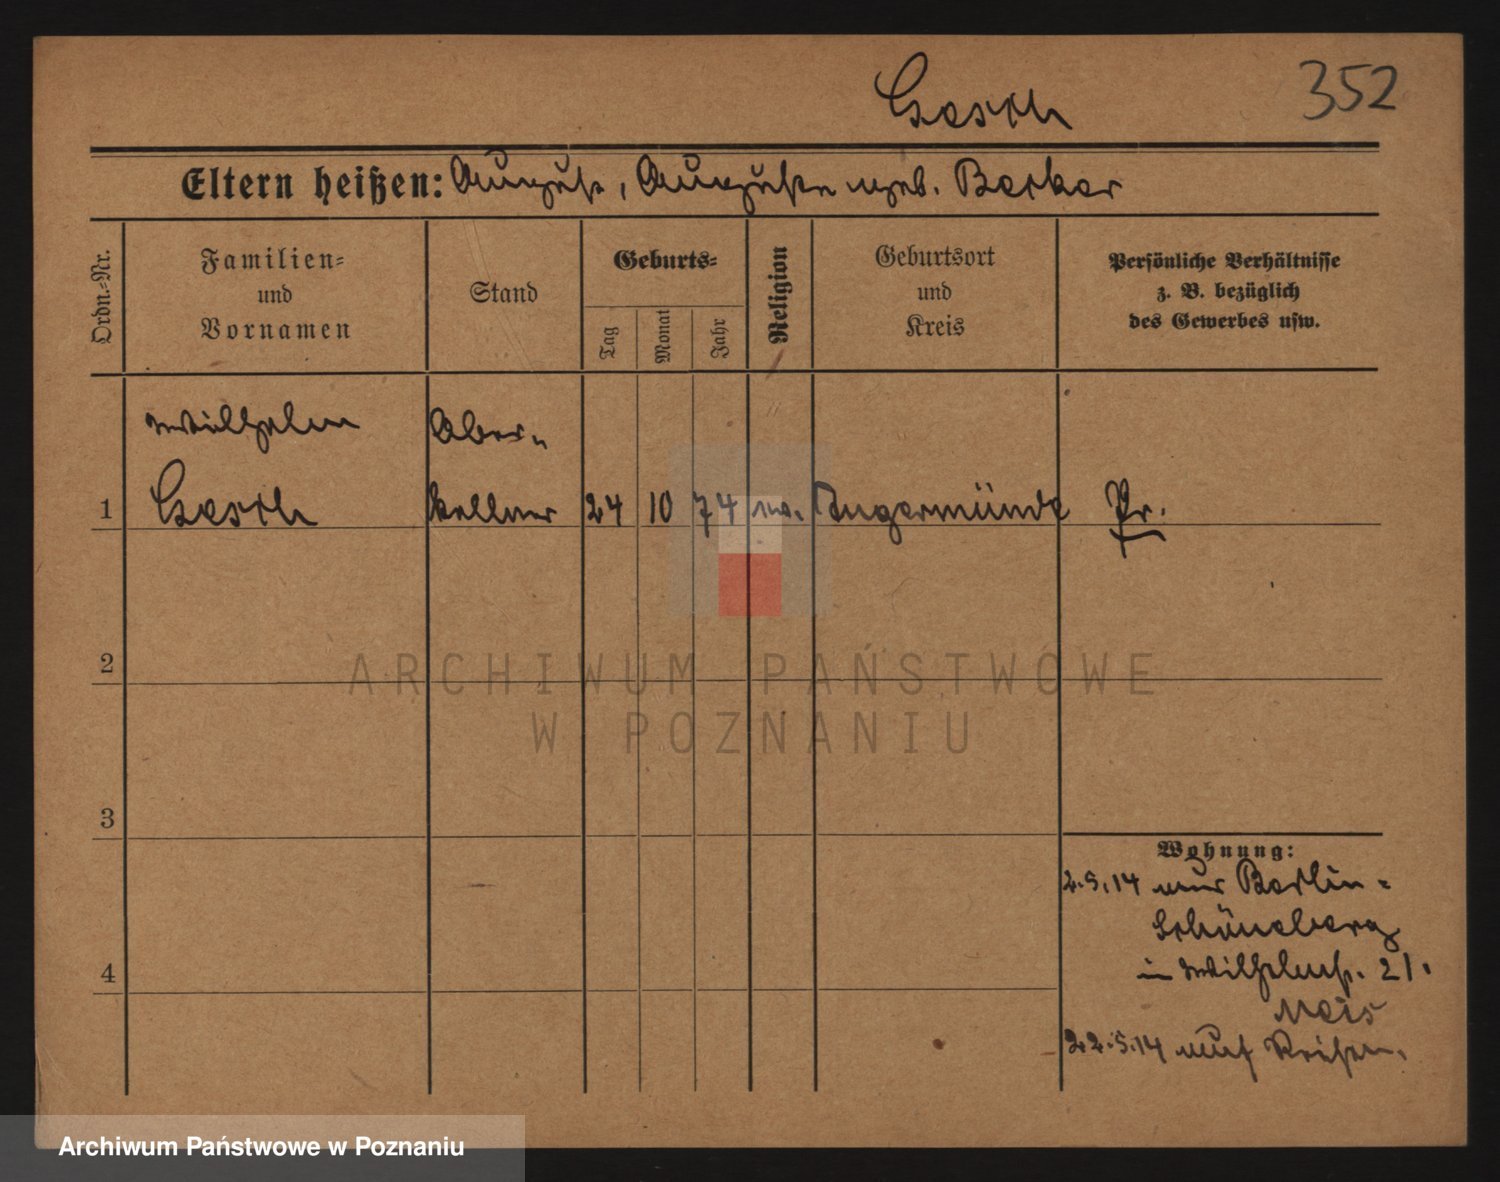 352
Gesch
Eltern heißen: August, Auguste geb. Becker
Ordn.-Nr.
Familien-
und
Vornamen
Stand
Geburts-
Tag
Monat
Jahr
Religion
Geburtsort
und
Kreis
Persönliche Verhältnisse
z. B. bezüglich
des Gewerbes usw.
Wilhelm
Ober-
1 Gesch kellner 24 10 74 ev. Angermünde Pr.
2
ARCHIWUM PAŃSTWOWE
W POZNANIU
3
Wohnung:
2.5.14 aus Berlin-
Schöneberg
in Wilhelmst. 21.
4
22.5.14 auf Reisen.
Archiwum Państwowe w Poznaniu